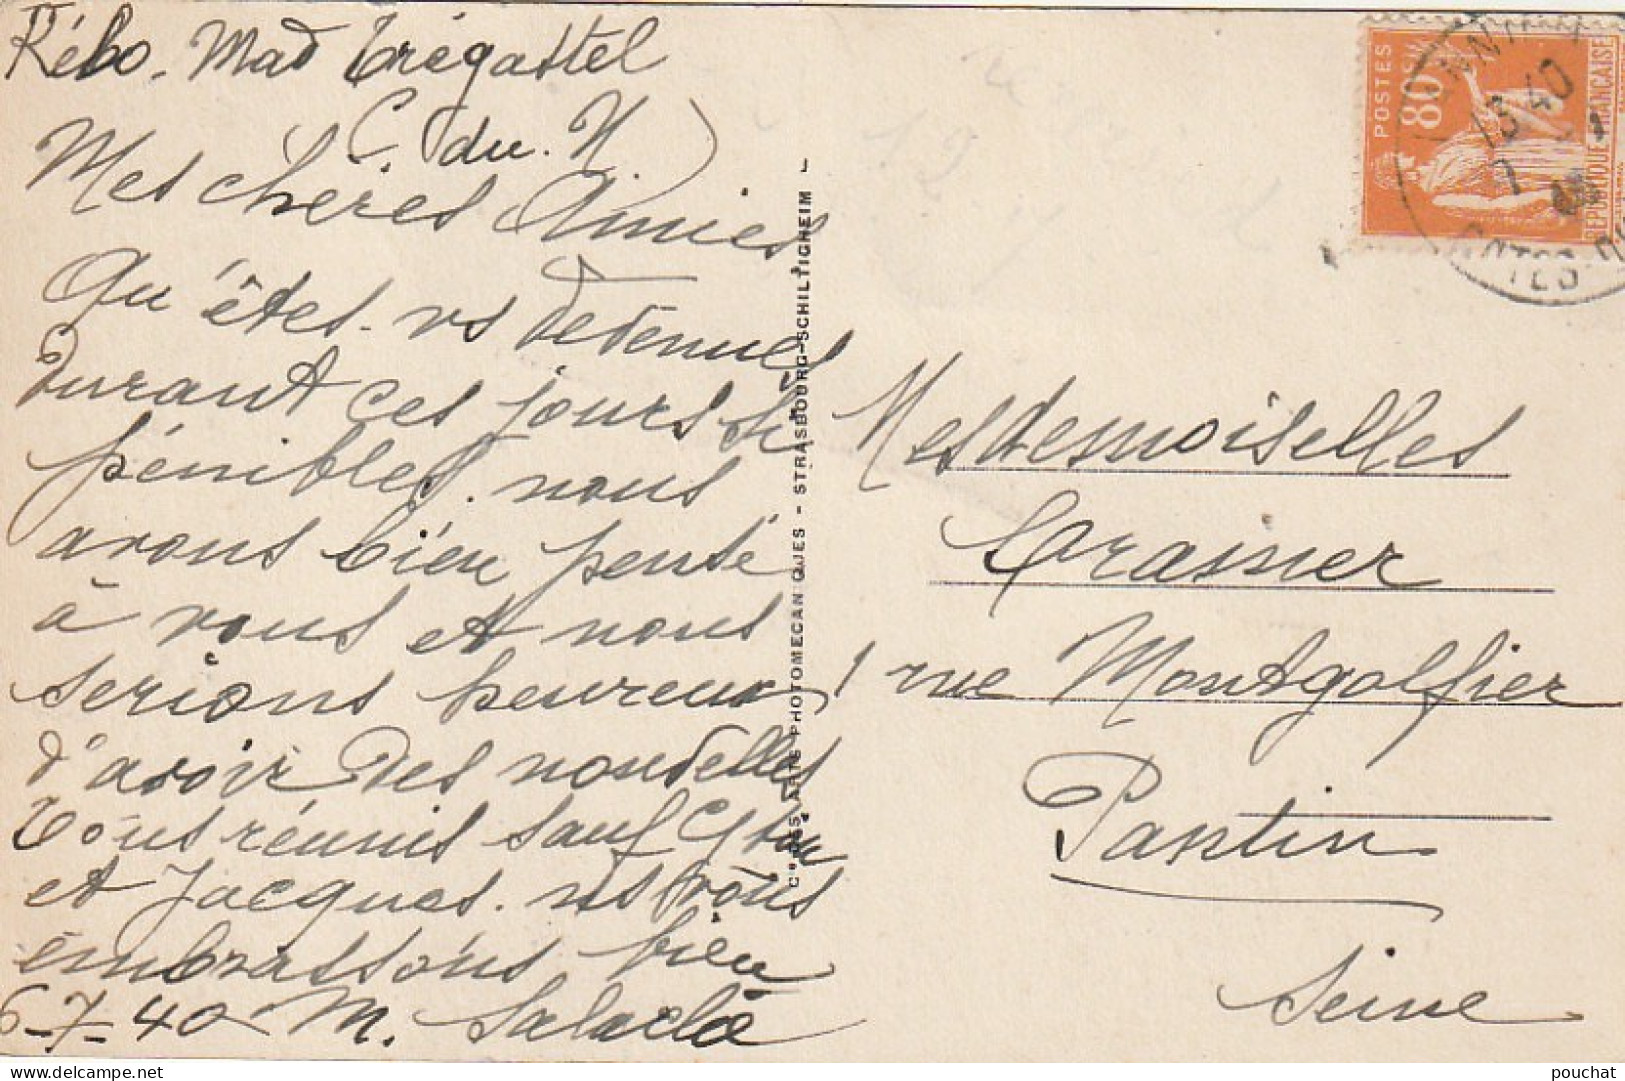 Kébo. Mad Trégastel
C. du. N)
Mes chères Amies
Qu'êtes-vs devenues
durant ces jours si
pénibles. nous
avons bien pensé
à vous et nous
serions heureux
d'avoir des nouvelles
Tous réunis sauf
et Jacques. ns vous
embrassons bien
6-7-40 M.
Cie DES ARTS PHOTOMECANIQUES - STRASBOURG-SCHILTIGHEIM
POSTES
80
REPUBLIQUE FRANCAISE
13 40
Mesdemoiselles
1 rue Montgolfier
Pantin
Seine
pouchat